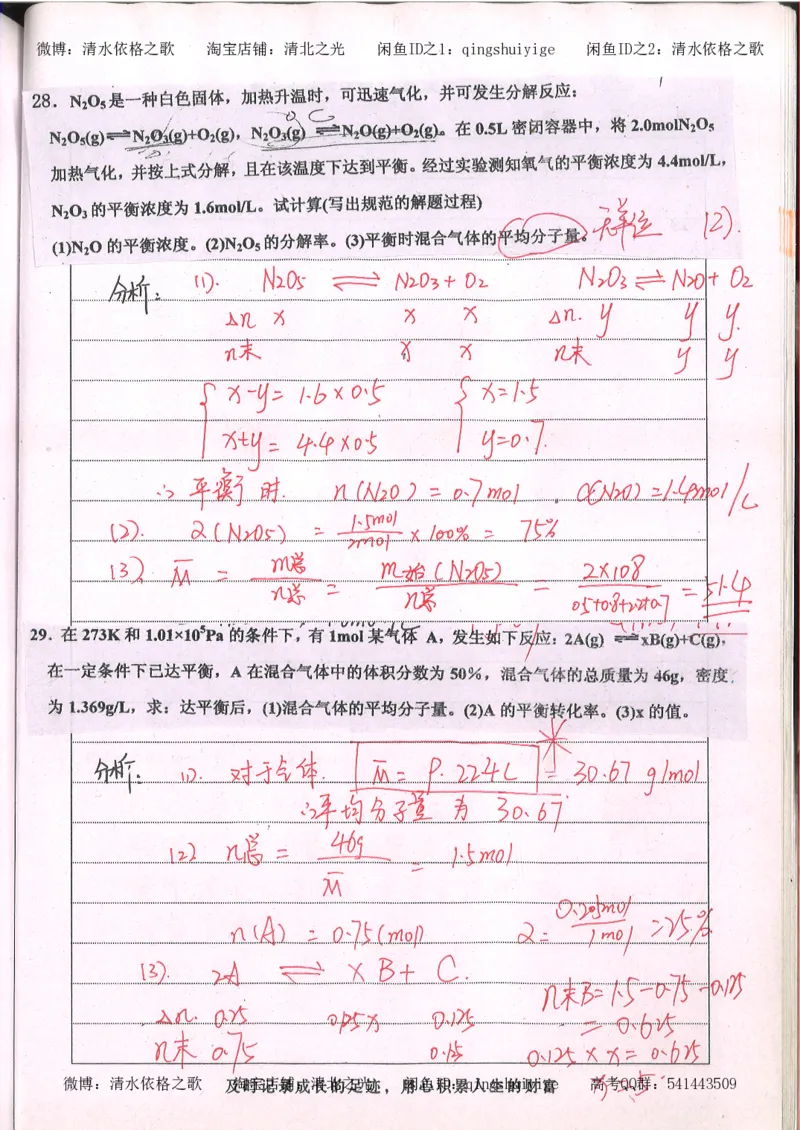 微博：清水依格之歌 淘宝店铺：清北之光 闲鱼ID之1：qingshuiyige 闲鱼ID之2：清水依格之歌
28．N₂O₅是一种白色固体，加热升温时，可迅速气化，并可发生分解反应：
N₂O₅(g)⇌N₂O₃(g)+O₂(g)，N₂O₃(g) ⇌N₂O(g)+O₂(g)。在 0.5L 密闭容器中，将 2.0molN₂O₅
加热气化，并按上式分解，且在该温度下达到平衡。经过实验测知氧气的平衡浓度为 4.4mol/L，
N₂O₃的平衡浓度为 1.6mol/L。试计算(写出规范的解题过程)
(1)N₂O 的平衡浓度。(2)N₂O₅的分解率。(3)平衡时混合气体的平均分子量。 无单位 (2).
分析： (1). N₂O₅ ⇌ N₂O₃ + O₂ N₂O₃ ⇌ N₂O + O₂
Δn x x x Δn. y y y.
n末 x x n末 y y
{ x-y= 1.6×0.5 { x=1.5
x+y= 4.4×0.5 y=0.7.
∴ 平衡时. n(N₂O) = 0.7mol . C(N₂O) =1.4mol/L
(2). α(N₂O₅) = 1.5mol/2mol × 100% = 75%
(3). M̄ = m总/n总 = m始(N₂O₅)/n总 = 2×108/0.5+0.8+2.2+0.7 = 51.4
29．在 273K 和 1.01×10⁵Pa 的条件下，有 1mol 某气体 A，发生如下反应：2A(g) ⇌xB(g)+C(g)，
在一定条件下已达平衡，A 在混合气体中的体积分数为 50%，混合气体的总质量为 46g，密度
为 1.369g/L，求：达平衡后，(1)混合气体的平均分子量。(2)A 的平衡转化率。(3)x 的值。
分析： (1). 对于气体. M̄ = ρ. 22.4L = 30.67 g/mol
∴平均分子量为 30.67
(2) n总 = 46g/M̄ = 1.5mol
n(A) = 0.75(mol) α= 0.25mol/1mol =25%
(3). 2A ⇌ x B + C.
n末B=1.5-0.75-0.125
Δn. 0.25 0.125x 0.125
= 0.625
n末 0.75 0.125 × x = 0.625
微博：清水依格之歌 淘宝店铺：清北之光 闲鱼ID之1：qingshuiyige 高考QQ群：541443509
及时记录成长的足迹，用心积累人生的财富